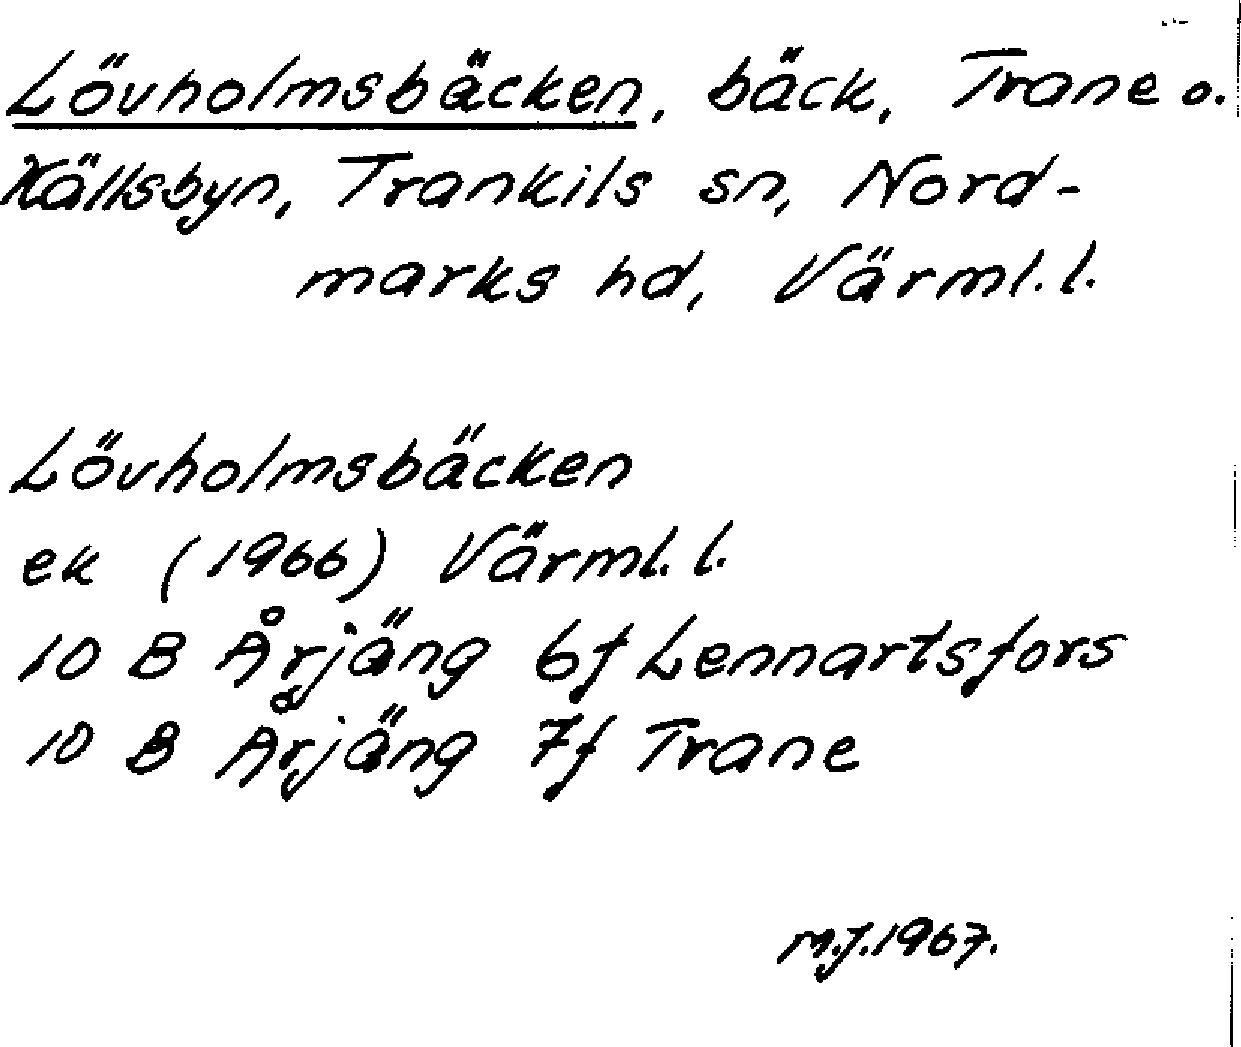 Lövholmsbäcken, bäck, Trane o.
Källsbyn, Trankils sn, Nord-
marks hd, Värml. l.
Lövholmsbäcken
ek (1966) Värml. l.
10 B Årjäng 6f Lennartsfors
10 B Årjäng 7f Trane
M.J. 1967.